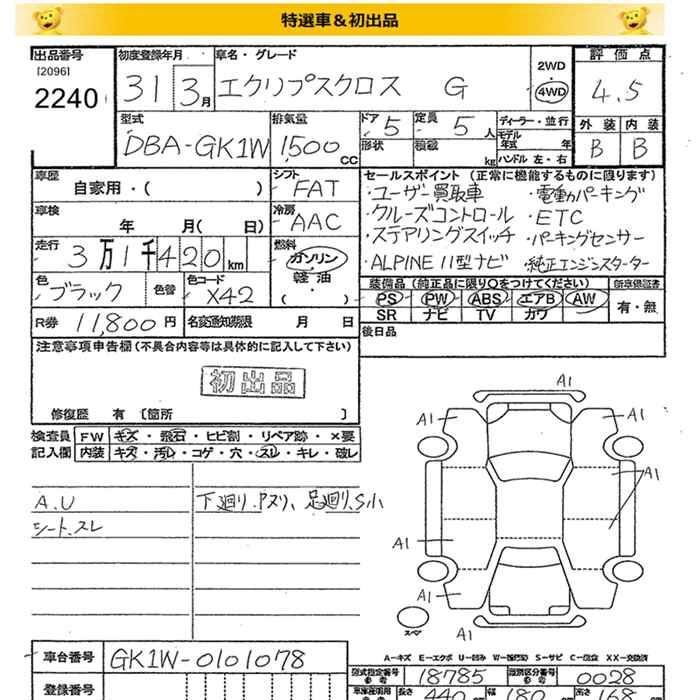 特選車＆初出品
出品番号
[2096]
2240
初度登録年月
31 3月
車名・グレード
エクリプスクロス G
2WD
4WD
評価点
4.5
外装 内装
B B
型式
DBA-GK1W
排気量
1,500 cc
ドア 5
定員 5人
形状
積載 kg
ディーラー・並行
モデル年式 年
ハンドル 左・右
車歴
自家用・( )
シフト
FAT
車検
年 月( 日)
冷房
AAC
走行
3万1千420km
燃料
ガソリン
軽油
( )
色
ブラック
色替
色コード
X42
R券 11,800円
名変通知期限 月 日
セールスポイント（正常に機能するものに限ります）
・ユーザー買取車 ・電動パーキング
・クルーズコントロール ・ETC
・ステアリングスイッチ ・パーキングセンサー
・ALPINE 11型ナビ ・純正エンジンスターター
装備品（純正品に限りOをつけてください）
PS PW ABS エアB AW
SR ナビ TV カワ
新車保証書
有・無
後日品
注意事項申告欄(不具合内容等は具体的に記入して下さい)
初出品
修復歴 有〔箇所 〕
検査員記入欄
FW キズ・飛石・ヒビ割・リペア跡・×要
内装 キズ・汚レ・コゲ・穴・スレ・キレ・破レ
A.U
シート.スレ
下廻り.Pヌリ、足廻り.S小
A1
A1
A1
A1
A1
A1
A1
スペア
A－キズ E－エクボ U－凹み W－(修理跡) S－サビ C－腐食 XX－交換済
車台番号
GK1W-0101078
登録番号
型式指定番号
参考
18785
類別区分番号
参考
0028
長さ 440
幅 180
高さ 168